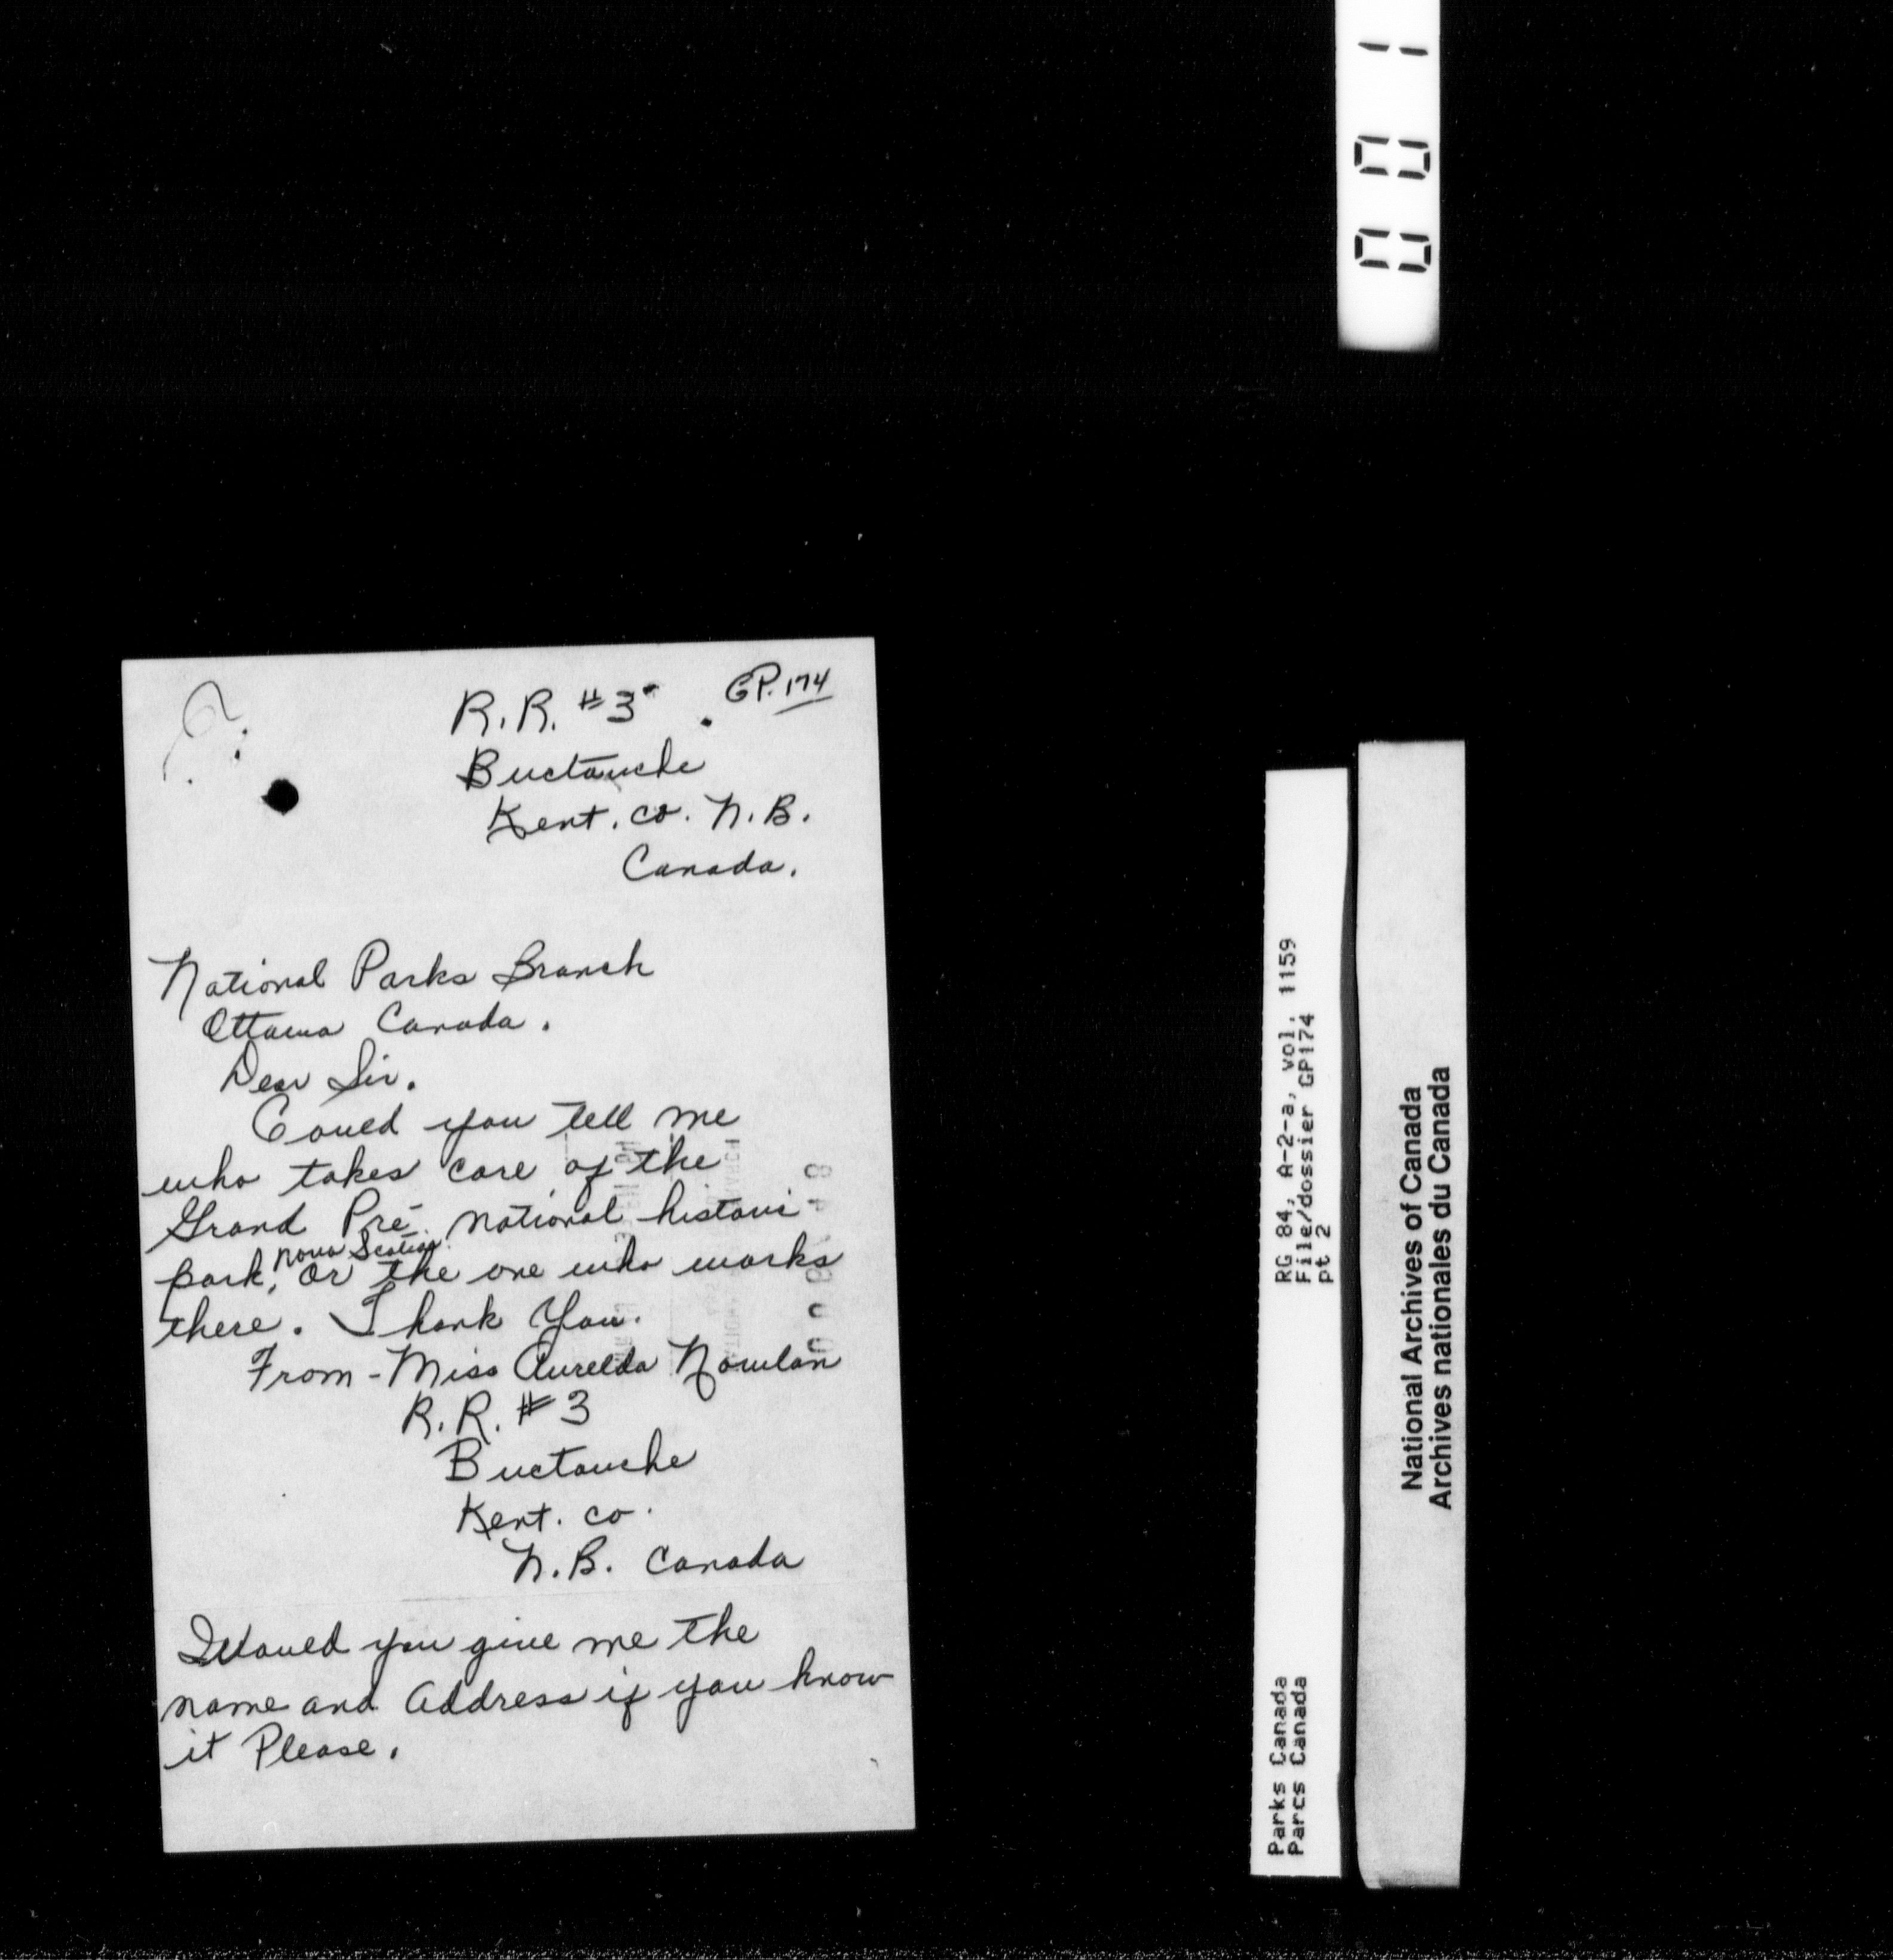 001
GP.174
R.R. #3
Buctouche
Kent. co. N.B.
Canada.
National Parks Branch
Ottawa Canada.
Dear Sir.
Could you tell me
who takes care of the
Grand Pré national histori
park, Nova Scotia. or the one who works
there. Thank You.
From - Miss Aurelda Nowlan
R.R. #3
Buctouche
Kent. co.
N.B. Canada
Would you give me the
name and Address if you know
it Please.
RG 84, A-2-a, vol. 1159
File/dossier GP174
pt 2
Parks Canada
Parcs Canada
National Archives of Canada
Archives nationales du Canada